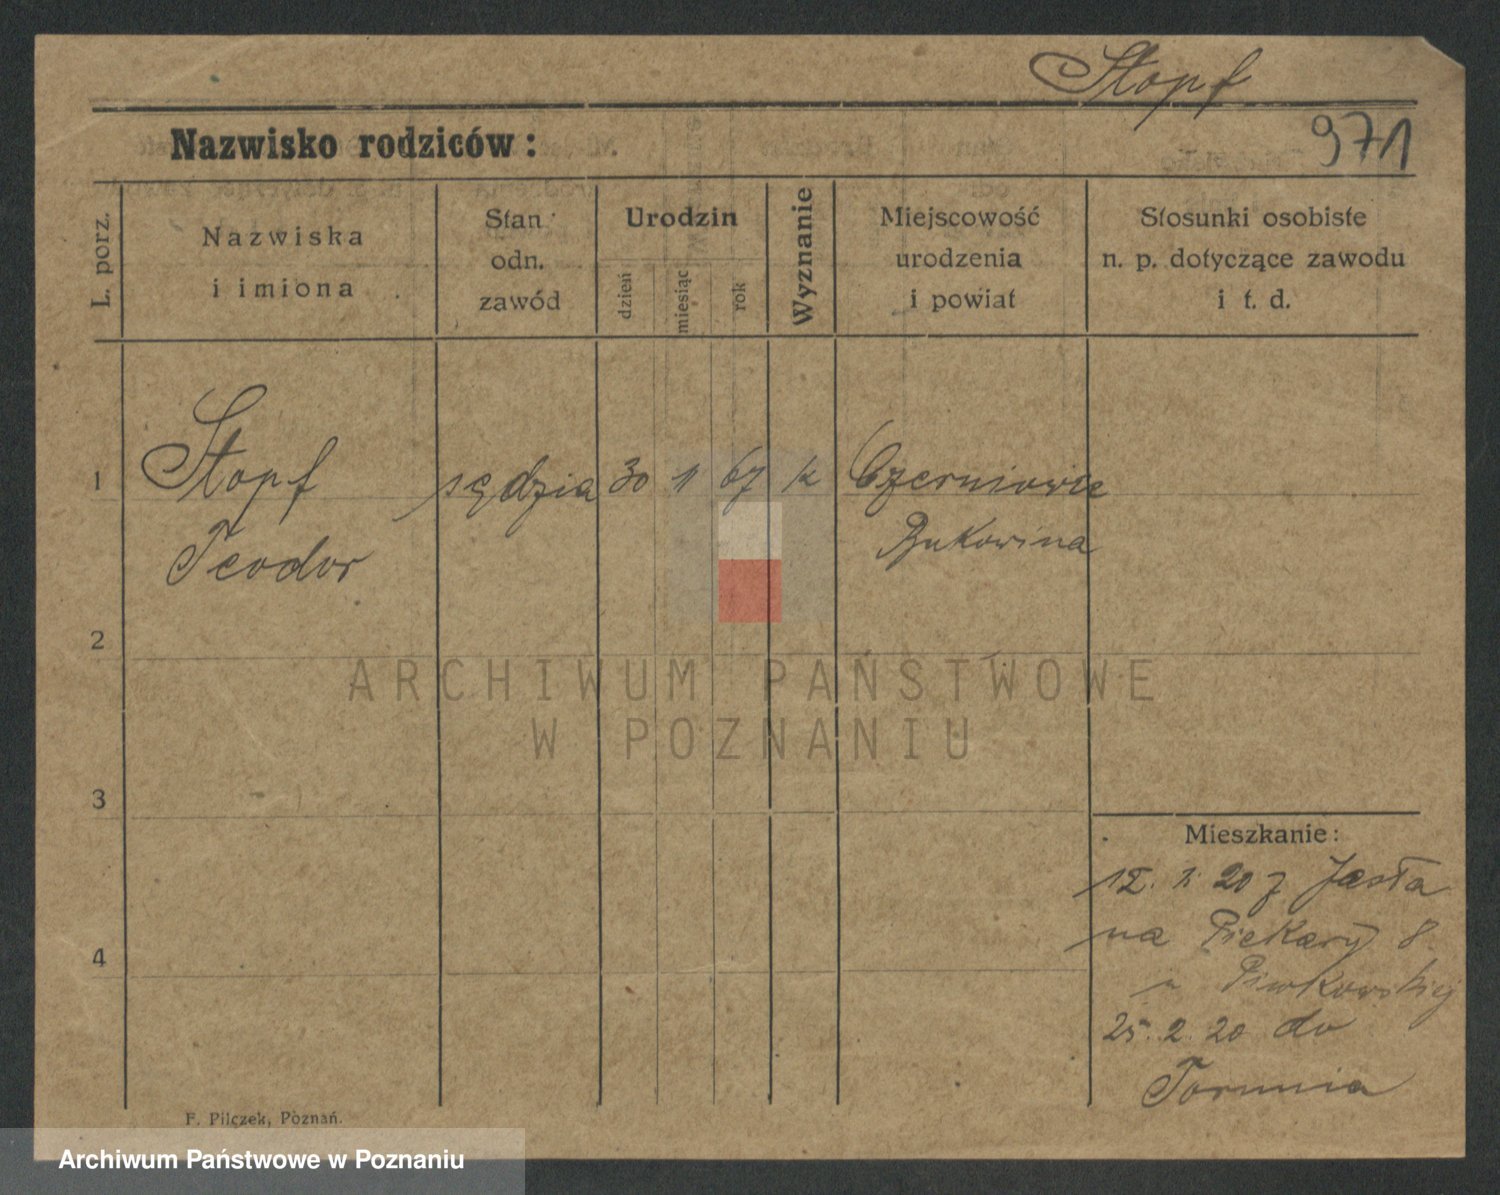 Stopf
971
Nazwisko rodziców:
L. porz.
Nazwiska
i imiona
Stan
odn.
zawód
Urodzin
dzień
miesiąc
rok
Wyznanie
Miejscowość
urodzenia
i powiat
Stosunki osobiste
n. p. dotyczące zawodu
i t. d.
1
Stopf
Teodor
sędzia
30
11
67
k
Czerniowce
Bukowina
2
3
4
Mieszkanie:
12. 1. 20 z Jasła
na Piekary 8
u Piwkowskiej
25. 2. 20 do
Torunia
F. Pilczek, Poznań.
ARCHIWUM PAŃSTWOWE
W POZNANIU
Archiwum Państwowe w Poznaniu